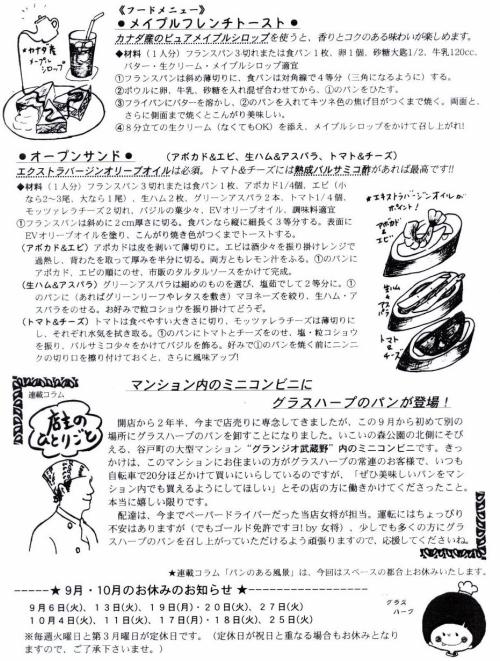 《フードメニュー》
● メイプルフレンチトースト ●
カナダ産のピュアメイプルシロップを使うと、香りとコクのある味わいが楽しめます。
◆材料（１人分）フランスパン３切れまたは食パン１枚、卵１個、砂糖大匙1/2、牛乳120cc、
バター・生クリーム・メイプルシロップ適宜
①フランスパンは斜め薄切りに、食パンは対角線で４等分（三角になるように）する。
②ボウルに卵、牛乳、砂糖を入れ混ぜ合わせてから、①のパンをひたす。
③フライパンにバターを溶かし、②のパンを入れてキツネ色の焦げ目がつくまで焼く。両面と、
さらに側面まで焼くとこんがり美味しい。
④８分立ての生クリーム（なくてもOK）を添え、メイプルシロップをかけて召し上がれ！
★カナダ産
メープル
シロップ
● オープンサンド ● （アボカド＆エビ、生ハム＆アスパラ、トマト＆チーズ）
エクストラバージンオリーブオイルは必須。トマト＆チーズには熟成バルサミコ酢があれば最高です!!
◆材料（１人分）フランスパン３切れまたは食パン１枚、アボカド1/4個、エビ（小
なら2～3尾、大なら１尾）、生ハム２枚、グリーンアスパラ２本、トマト1/４個、
モッツァレラチーズ２切れ、バジルの葉少々、EVオリーブオイル、調味料適宜
①フランスパンは斜めに２cm厚さに切る。食パンなら縦に細長く３等分する。表面に
EVオリーブオイルを塗り、こんがり焼き色がつくまでトーストする。
（アボカド＆エビ）アボカドは皮を剥いて薄切りに。エビは酒少々を振り掛けレンジで
過熱し、背わたを取って厚みを半分に切る。両方ともレモン汁をふる。①のパンに
アボカド、エビの順にのせ、市販のタルタルソースをかけて完成。
（生ハム＆アスパラ）グリーンアスパラは細めのものを選び、塩茹でして２等分に。①
のパンに（あればグリーンリーフやレタスを敷き）マヨネーズを絞り、生ハム・ア
スパラをのせる。お好みで粒コショウを振り掛けてどうぞ。
（トマト＆チーズ）トマトは食べやすい大きさに切り、モッツァレラチーズは薄切りに
し、それぞれ水気を拭き取る。①のパンにトマトとチーズをのせ、塩・粒コショウ
を振り、バルサミコ少々をかけてバジルを飾る。好みで①のパンを焼く前にニンニ
クの切り口を擦り付けておくと、さらに風味アップ！
★エキストラバージンオイルが
ポイント！
アボカド
＆
エビ
生ハム
＆
アスパラ
トマト
＆
チーズ
連載コラム
店主の
ひとりごと
マンション内のミニコンビニに
グラスハープのパンが登場！
開店から２年半、今まで店売りに専念してきましたが、この９月から初めて別の
場所にグラスハープのパンを卸すことになりました。いこいの森公園の北側にそび
える、谷戸町の大型マンション“グランジオ武蔵野”内のミニコンビニです。きっ
かけは、このマンションにお住まいの方がグラスハープの常連のお客様で、いつも
自転車で20分ほどかけて買いにいらしているのですが、「ぜひ美味しいパンをマン
ション内でも買えるようにしてほしい」とその店の方に働きかけてくださったこと。
本当に嬉しい限りです。
配達は、今までペーパードライバーだった当店女将が担当。運転にはちょっぴり
不安はありますが（でもゴールド免許ですヨ!by 女将）、少しでも多くの方にグラ
スハープのパンを召し上がっていただけるよう頑張りますので、応援してくださいね。
★連載コラム「パンのある風景」は、今回はスペースの都合上お休みいたします。
------★ 9月・10月のお休みのお知らせ ★------------------
９月６日(火)、１３日(火)、１９日(月)・２０日(火)、２７日(火)
１０月４日(火)、１１日(火)、１７日(月)・１８日(火)、２５日(火)
※毎週火曜日と第３月曜日が定休日です。（定休日が祝日と重なる場合もお休みとなり
ますので、ご了承下さいませ。）
グラス
ハープ